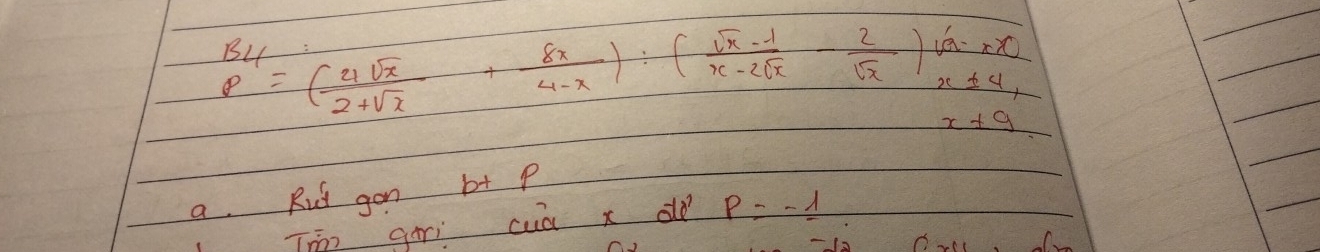 B4:
P = (4√x / 2+√x + 8x / 4-x) : (√x -1 / x-2√x - 2 / √x) với x>0
x ≠ 4,
x ≠ 9
a. Rút gọn bt P
Tìm gtrị của x để P = -1